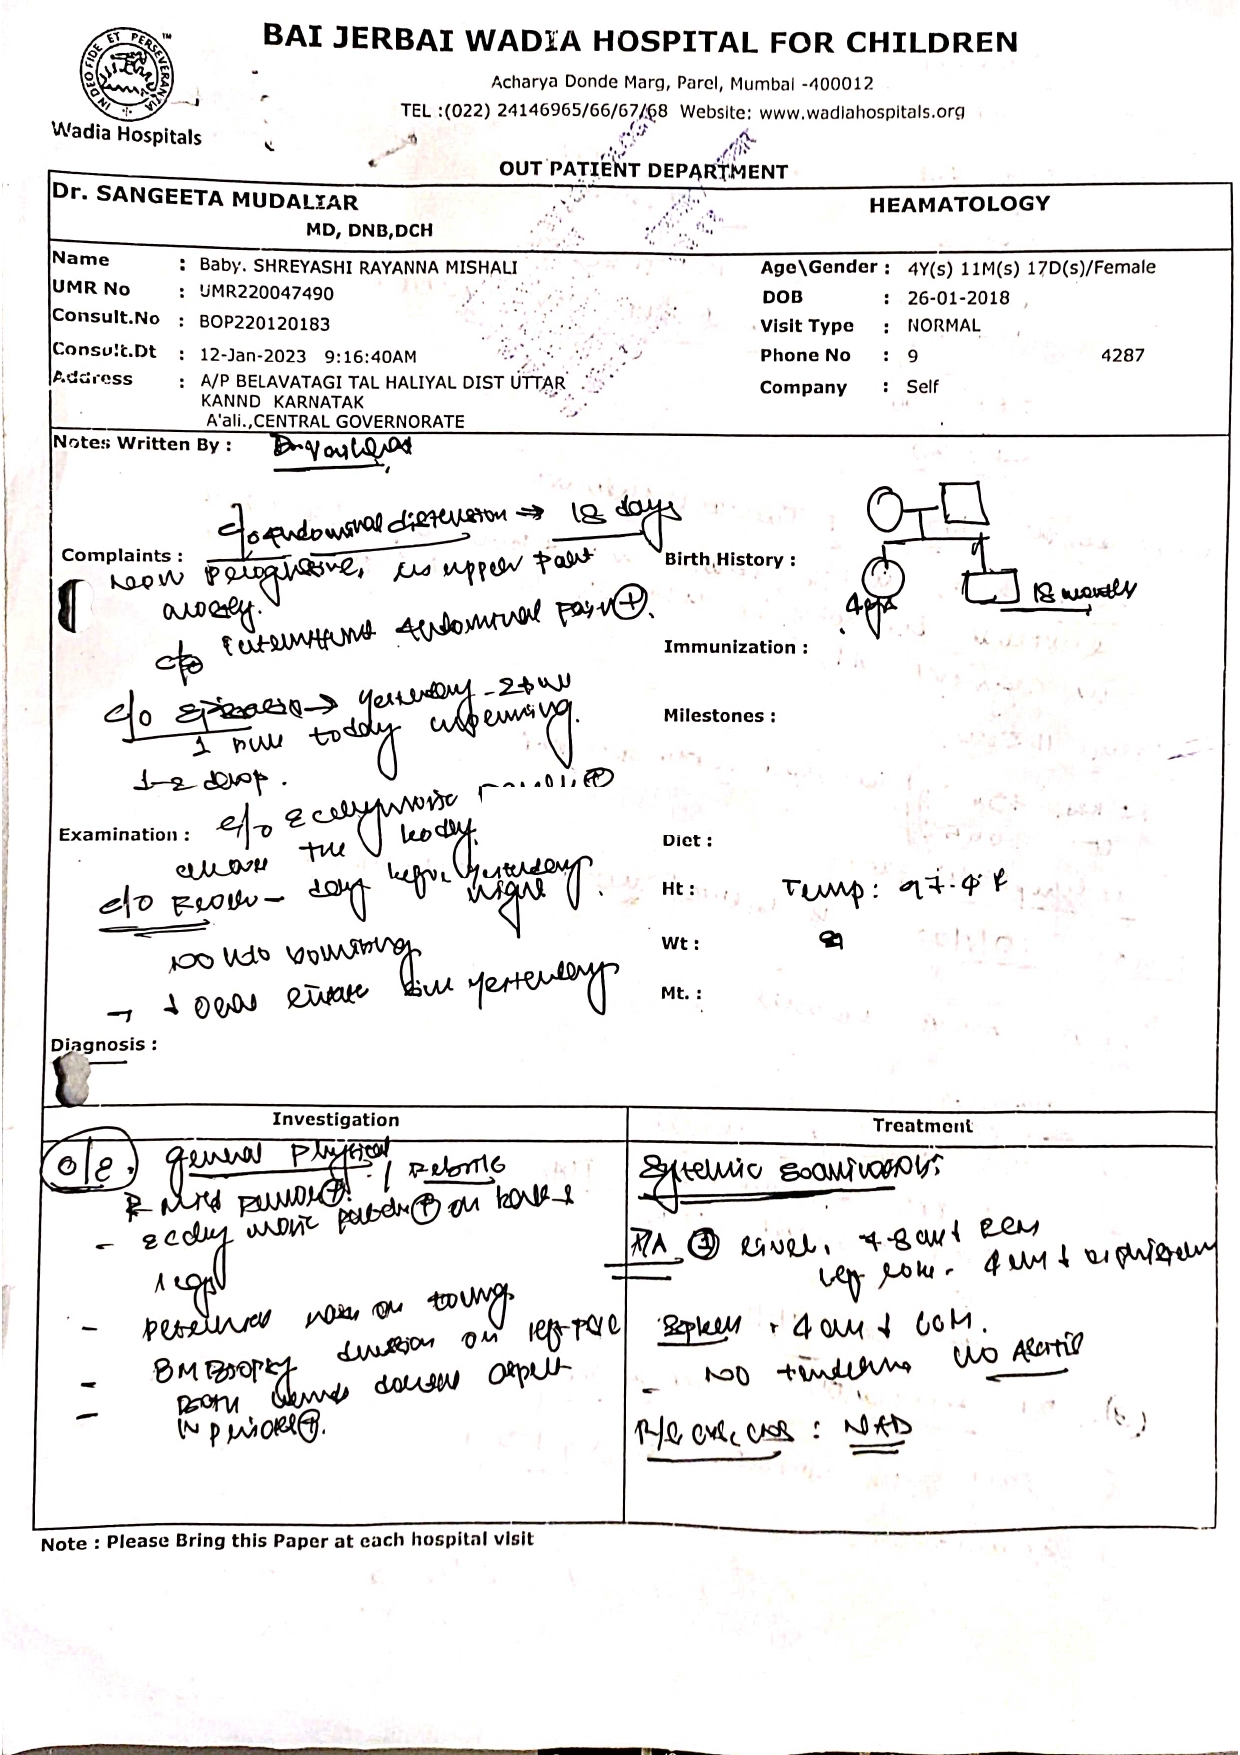 BAI JERBAI WADIA HOSPITAL FOR CHILDREN
Acharya Donde Marg, Parel, Mumbai -400012
TEL :(022) 24146965/66/67/68 Website: www.wadiahospitals.org
IN DEO FIDE ET PERSEVERANTIA
TM
Wadia Hospitals
OUT PATIENT DEPARTMENT
Dr. SANGEETA MUDALIAR
MD, DNB,DCH
HEAMATOLOGY
Name : Baby. SHREYASHI RAYANNA MISHALI
Age\Gender : 4Y(s) 11M(s) 17D(s)/Female
UMR No : UMR220047490
DOB : 26-01-2018
Consult.No : BOP220120183
Visit Type : NORMAL
Consult.Dt : 12-Jan-2023 9:16:40AM
Phone No : 9 4287
Address : A/P BELAVATAGI TAL HALIYAL DIST UTTAR
KANND KARNATAK
A'ali.,CENTRAL GOVERNORATE
Company : Self
Notes Written By :
c/o Abdominal distension → 18 days
Complaints :
upper part
mostly.
c/o intermittent abdominal pain +.
c/o → yesterday -
1 today morning.
1-2 drop.
Birth History :
4
18 months
Immunization :
Milestones :
Examination : c/o Ecchymotic +
the body.
c/o Fever - day before yesterday
night.
No h/o vomiting
→ ↓ oral intake since yesterday
Diet :
Ht : Temp: 97.4 F
Wt :
Mt. :
Diagnosis :
Investigation
Treatment
O/E. General Physical / Febrile
+
- Ecchymotic + on
-
on left
- BM Biopsy
- +.
Systemic Examination:
P/A liver, 7-8 cm ↓ RCM
left lobe - 4 cm ↓
Spleen - 4 cm ↓ LCM.
- No tenderness No Ascites
R/S CVS, CNS : NAD
Note : Please Bring this Paper at each hospital visit